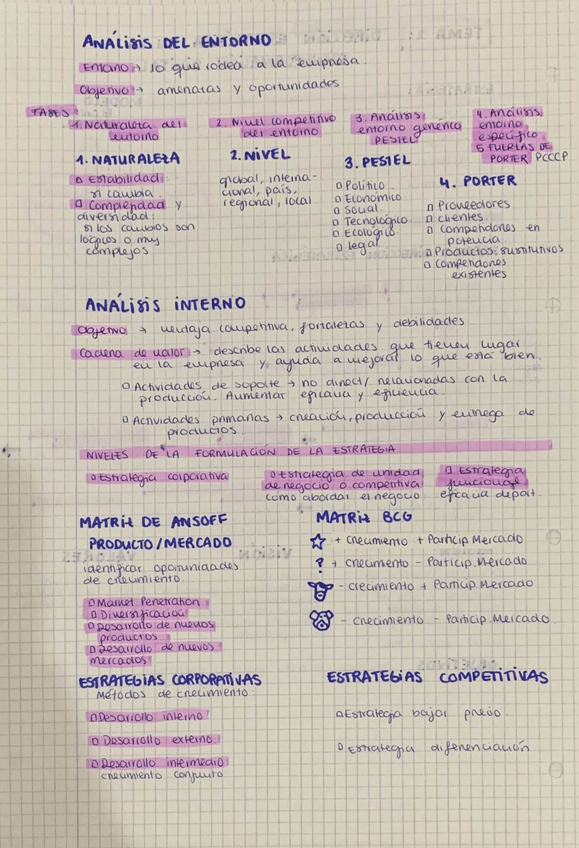 ANÁLISIS DEL ENTORNO
Entorno → lo que rodea a la empresa.
Objetivo → amenazas y oportunidades
FASES:
1. Naturaleza del entorno
2. Nivel competitivo del entorno
3. Análisis entorno genérico PESTEL
4. Análisis entorno específico
5 FUERZAS DE PORTER PCCCP
1. NATURALEZA
Estabilidad:
si cambia
Complejidad y
diversidad:
si los cambios son
lógicos o muy
complejos
2. NIVEL
global, interna-
cional, país,
regional, local
3. PESTEL
Político
Económico
Social
Tecnológico
Ecológico
legal
4. PORTER
Proveedores
clientes
Competidores en
potencia
Productos sustitutivos
Competidores
existentes
ANÁLISIS INTERNO
Objetivo → ventaja competitiva, fortalezas y debilidades
Cadena de valor → describe las actividades que tienen lugar
en la empresa y ayuda a mejorar lo que está bien.
Actividades de soporte → no direct/ relacionadas con la
producción. Aumentar eficacia y eficiencia
Actividades primarias → creación, producción y entrega de
productos
NIVELES DE LA FORMULACIÓN DE LA ESTRATEGIA
Estrategia corporativa
Estrategia de unidad
de negocio o competitiva
como abordar el negocio
Estrategia
funcional
eficacia depart.
MATRIZ DE ANSOFF
PRODUCTO/MERCADO
identificar oportunidades
de crecimiento.
Market Penetration
Diversificación
Desarrollo de nuevos
productos
Desarrollo de nuevos
mercados
MATRIZ BCG
+ crecimiento + Particip Mercado
? + crecimiento - Particip. Mercado
- crecimiento + Particip Mercado
- crecimiento - Particip Mercado
ESTRATEGIAS CORPORATIVAS
Métodos de crecimiento:
Desarrollo interno
Desarrollo externo
Desarrollo intermedio
crecimiento conjunto
ESTRATEGIAS COMPETITIVAS
Estrategia bajar precio
Estrategia diferenciación